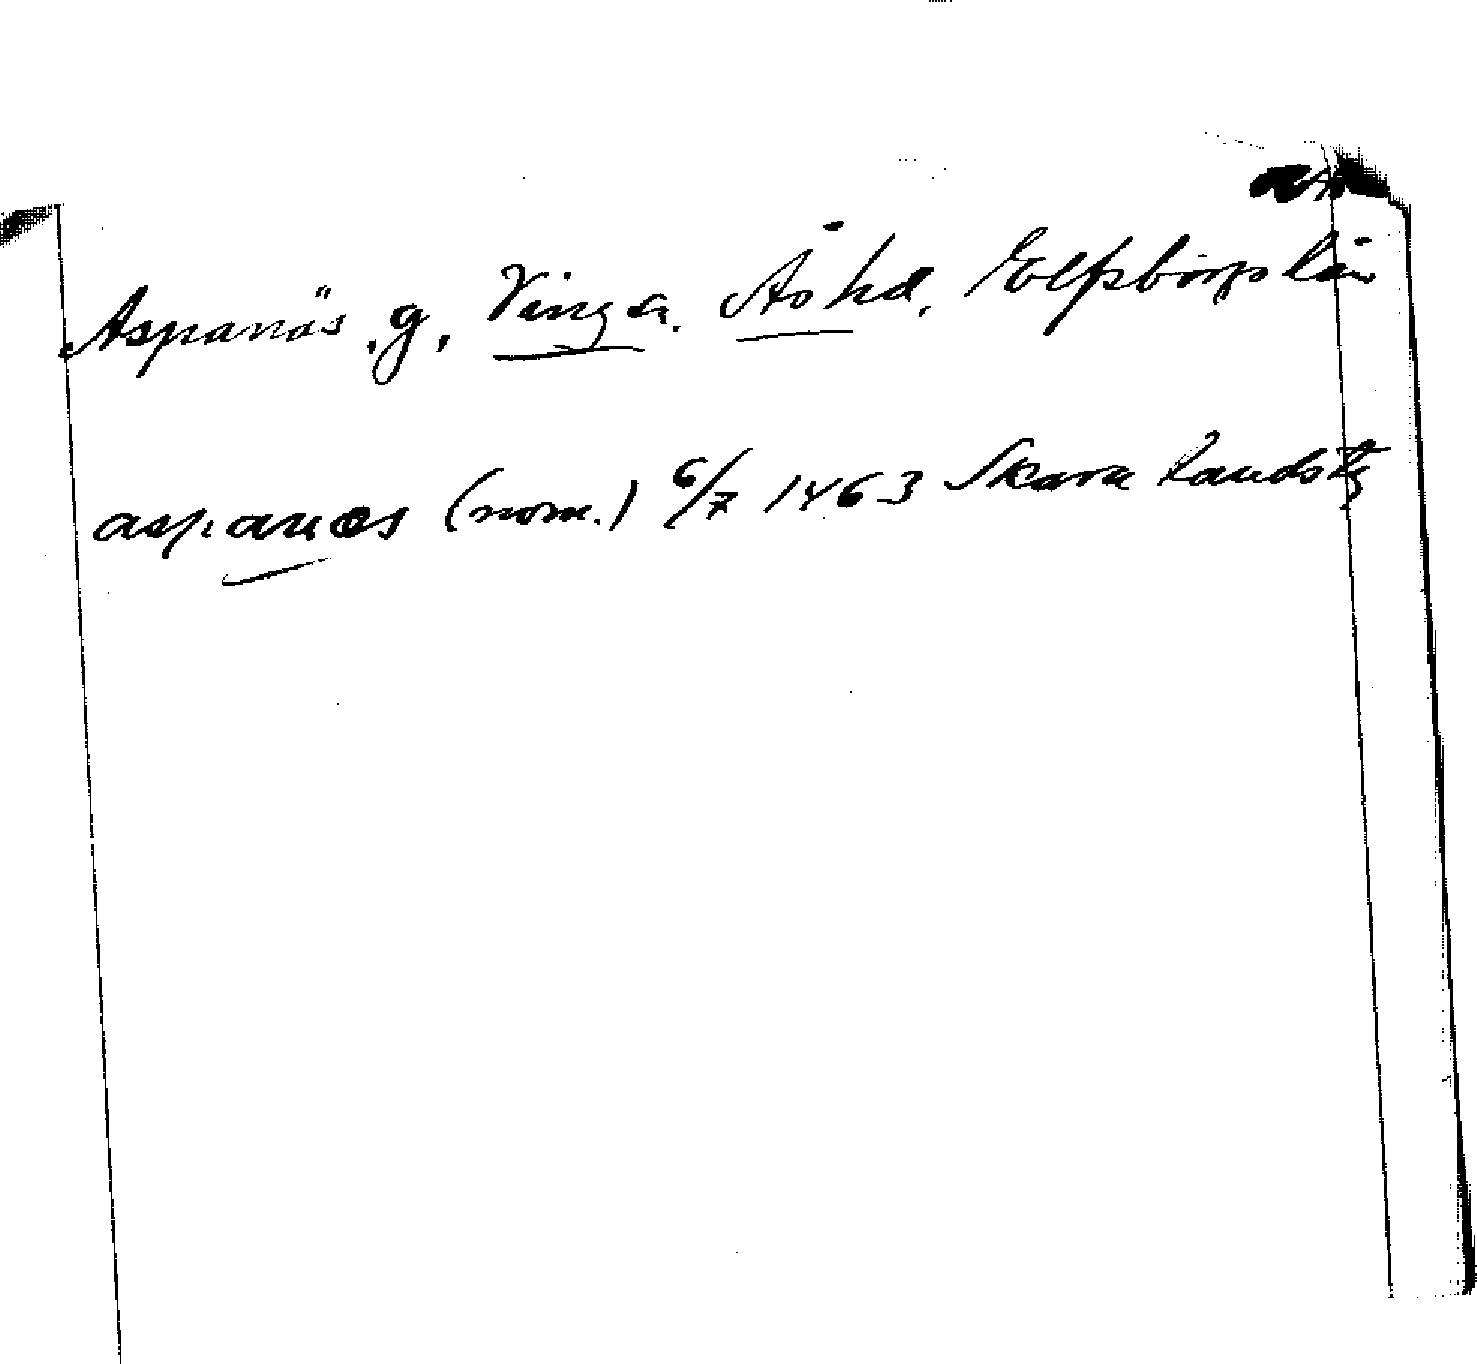 Aspanäs, g, Vinga. Ås hd. Elfsborgs län
aspanæs (nom.) 6/7 1463 Skara